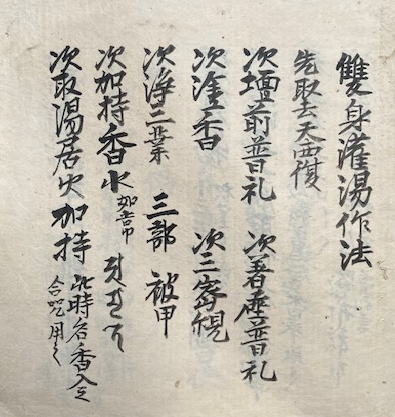 雙身灌湯作法
先取去天酉復
次壇前普礼 次著座普礼
次塗香 次三密観
次浄三業 三部 被甲
次加持香水 如常
次取湯居火加持 此時名香入之
合呪用之